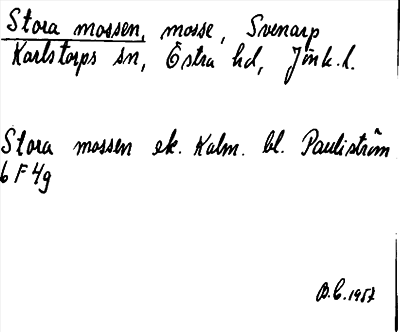 Stora mossen, mosse, Svenarp
Karlstorps sn, Östra hd, Jönk.l.
Stora mossen ek. Kalm. bl. Pauliström
6 F 4g
B.C. 1957